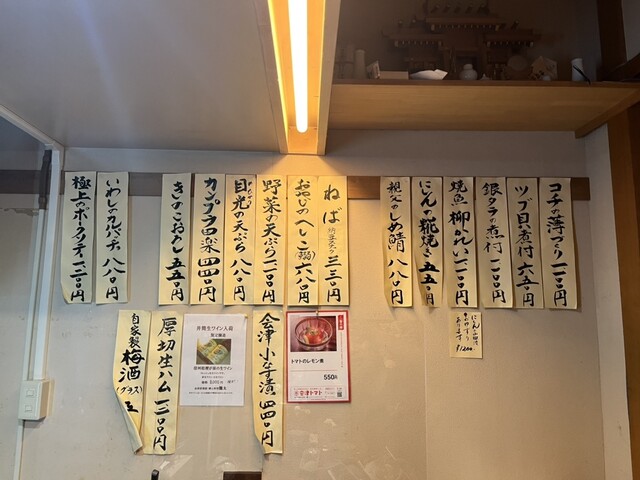 コチの薄づくり 一一〇〇円
ツブ貝煮付 六五〇円
銀タラの煮付 一一〇〇円
焼魚 柳かれい 一一〇〇円
にしんの糀焼き 五五〇円
親父のしめ鯖 八八〇円
ねば
三三〇円
おやじのへしこ(鯖) 六八〇円
野菜の天ぷら 一一〇〇円
目光の天ぷら 八八〇円
カンプラ田楽 四四〇円
きのこおろし 五五〇円
いわしのカルパッチョ 八八〇円
極上のポークソテー 一三〇〇円
あります
¥1200
トマトのレモン煮
550円
会津トマト
会津小茄子漬 四四〇円
弁慶生ワイン入荷
厚切生ハム 一三〇〇円
自家製梅酒(グラス)